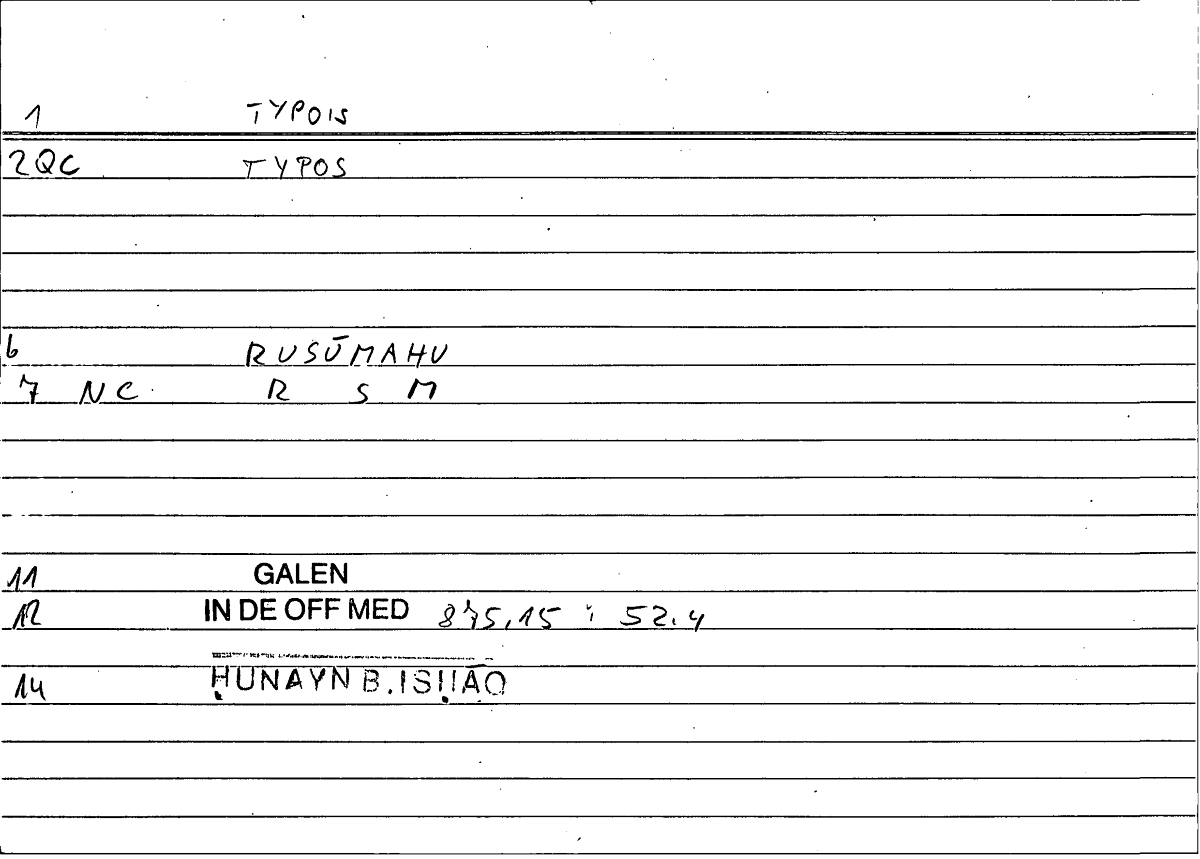 1 TYPOIS
2QC TYPOS
6 RUSŪMAHU
7 NC R S M
11 GALEN
12 IN DE OFF MED 875,15 ; 52.4
14 ḤUNAYN B. ISḤĀQ